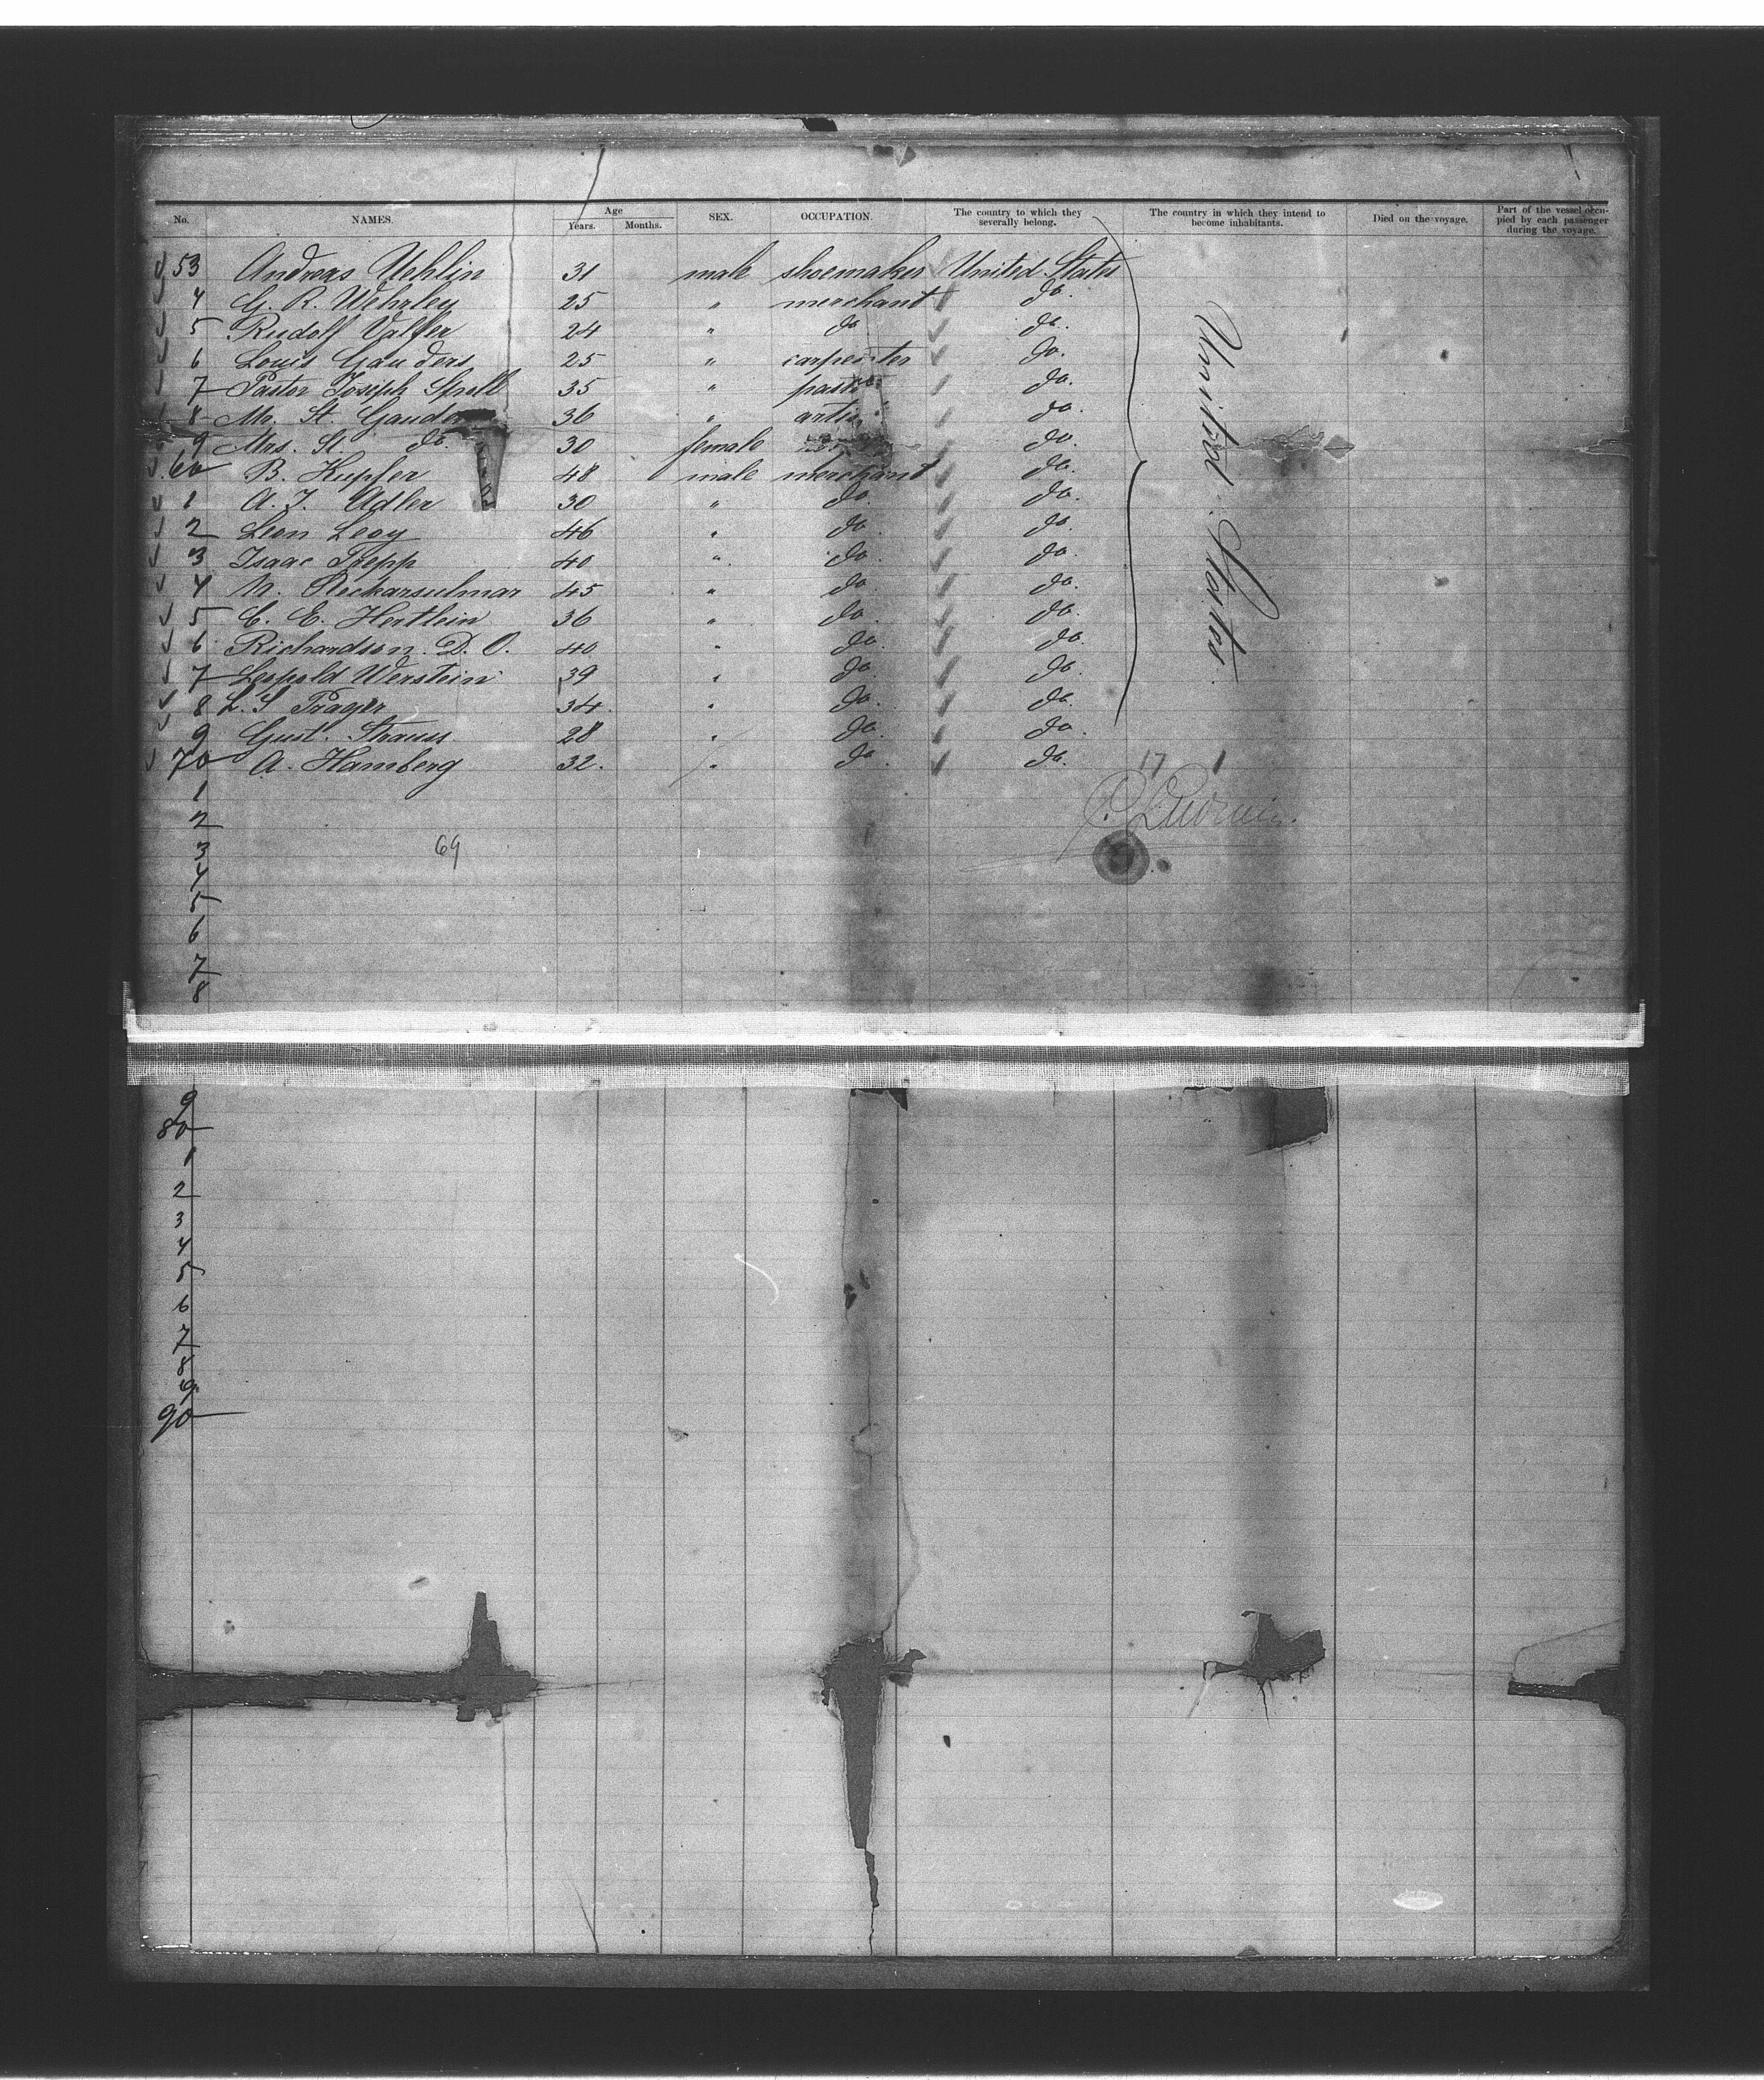 No. NAMES. Age Years. Months. SEX. OCCUPATION. The country to which they severally belong. The country in which they intend to become inhabitants. Died on the voyage. Part of the vessel occupied by each passenger during the voyage.
53 Andreas Uehlin 31 male shoemaker United States
4 G. R. Wehrley 25 " merchant do.
5 Rudolf 24 " do do.
6 Louis Gauders 25 " carpenter do.
7 Pastor Joseph 35 " pastor do.
8 Mr. St. Gauden 36 " artist do.
9 Mrs. St. do. 30 female do.
60 B. Hupfer 48 male merchant do.
1 A. J. Adler 30 " do. do.
2 Leon Levy 46 " do. do.
3 Isaac Trepp 40 " do. do.
4 N. Neckarsulmar 45 " do. do.
5 C. E. Hertlein 36 " do. do.
6 Richardson. D. O. 40 " do. do.
7 Leopold Werstein 39 " do. do.
8 L. S Prager 34. " do. do.
9 Gust. Strauss 28 " do. do.
70 A. Hamberg 32. " do. do.
United States
17 1
1
2
3 69
4
5
6
7
8
9
80
1
2
3
4
5
6
7
8
9
90